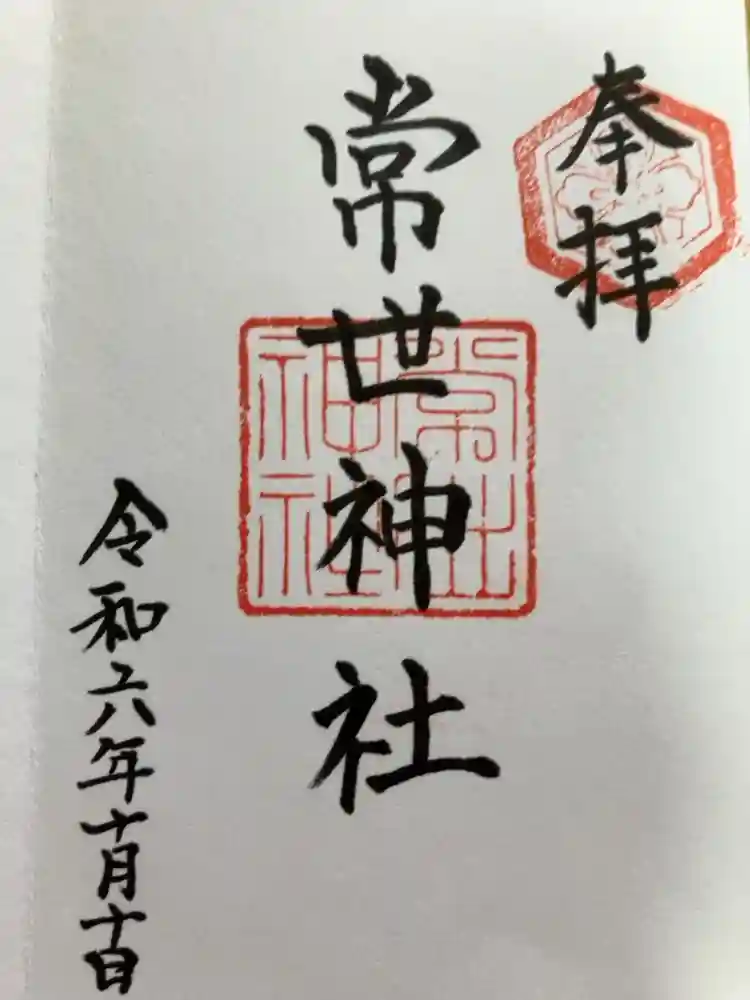 奉拝
常世神社
常世神社
令和六年十月十日